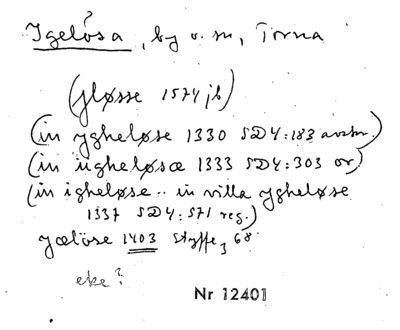 Igelösa, by o. sn, Torna
(Jløsse 1574 jb)
(in ygheløse 1330 SD4:183 avskr.)
(in ugheløsæ 1333 SD4:303 or)
(in igheløse .. in villa ygheløse
1337 SD4:571 reg.)
Jæløse 1403 Styffe, 68
eke?
Nr 12401